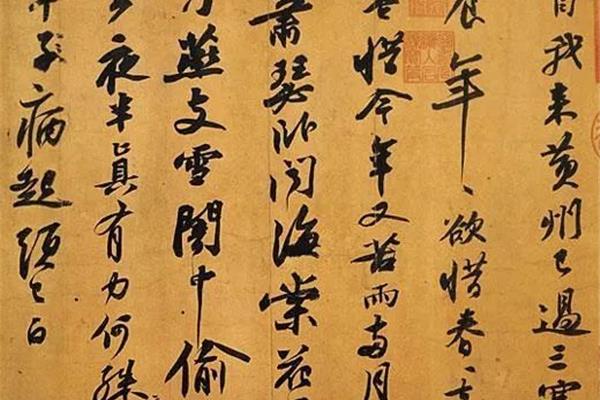 自我来黄州已過三寒
食年ゝ欲惜春ゝ去
容惜今年又苦雨兩月
蕭瑟卧聞海棠花
燕支雪闇中偷
夜半真有力何殊
年子病起頭已白